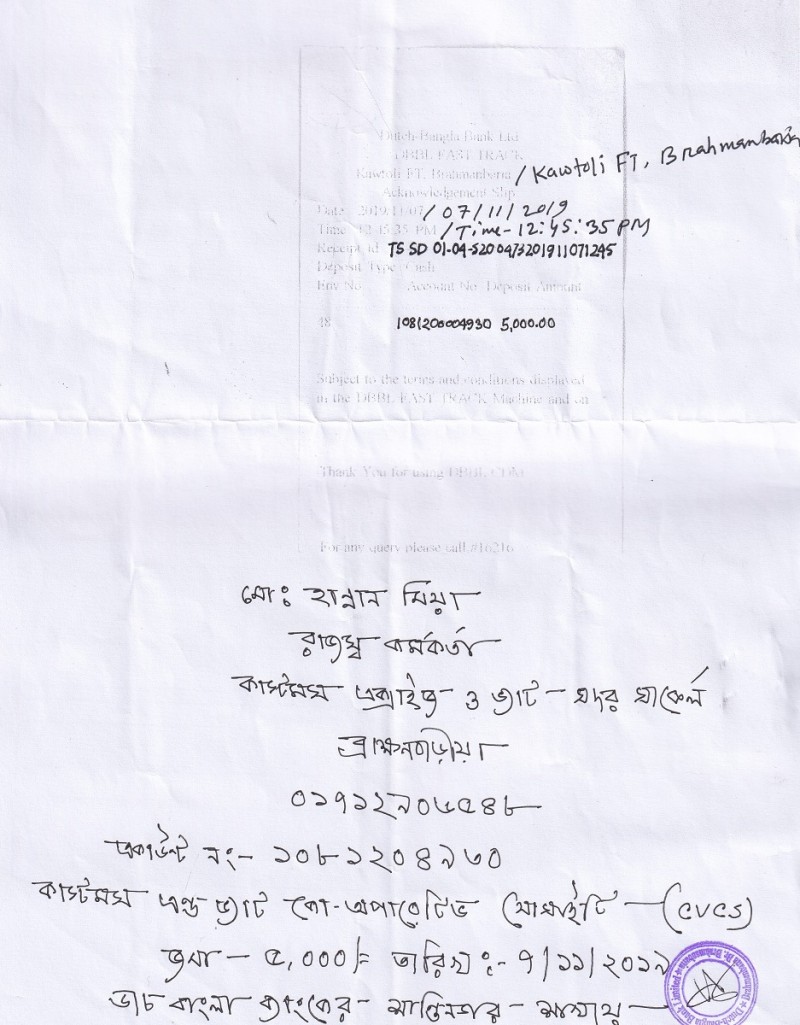 Dutch-Bangla Bank Ltd
DBBL FAST TRACK
Kawtoli FT, Brahmanbaria / Kawtoli FT, Brahmanbaria
Acknowledgement Slip
Date 2019/11/07 / 07/11/2019
Time 12:45:35 PM / Time-12:45:35 PM
Receipt Id TSSD 01-04-S200473201911071245
Deposit Type Cash
Env No Account No Deposit Amount
48 1081200004930 5,000.00
Subject to the terms and conditions displayed
in the DBBL FAST TRACK Machine and on
Thank You for using DBBL CDM
For any query please call #16216
মোঃ হান্নান মিয়া
রাজস্ব কর্মকর্তা
কাস্টমস এক্সাইজ ও ভ্যাট - সদর সার্কেল
ব্রাক্ষনবাড়ীয়া
০১৯১২৯০৬৫৪৮
একাউন্ট নং- ১০৮১২০৪৯৩০
কাস্টমস এন্ড ভ্যাট কো-অপারেটিভ সোসাইটি - (CVCS)
জমা - ৫,০০০/= তারিখ :- ৭/১১/২০১৯
ডাচ বাংলা ব্যাংকের - শান্তিনগর - শাখায়